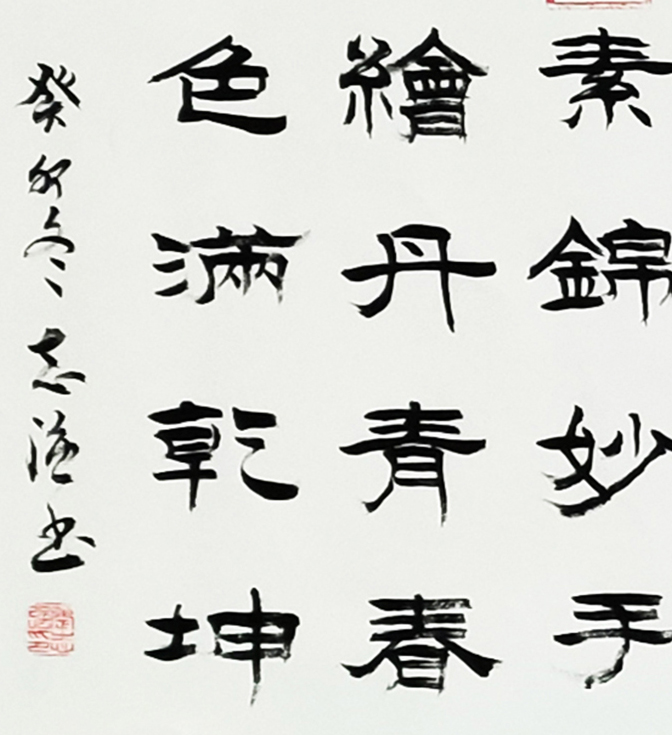 素錦妙手
繪丹青春
色滿乾坤
癸卯冬志滿書